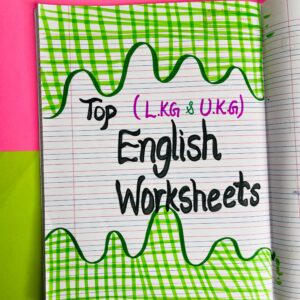 Top (L.KG & U.K.G)
English
Worksheets